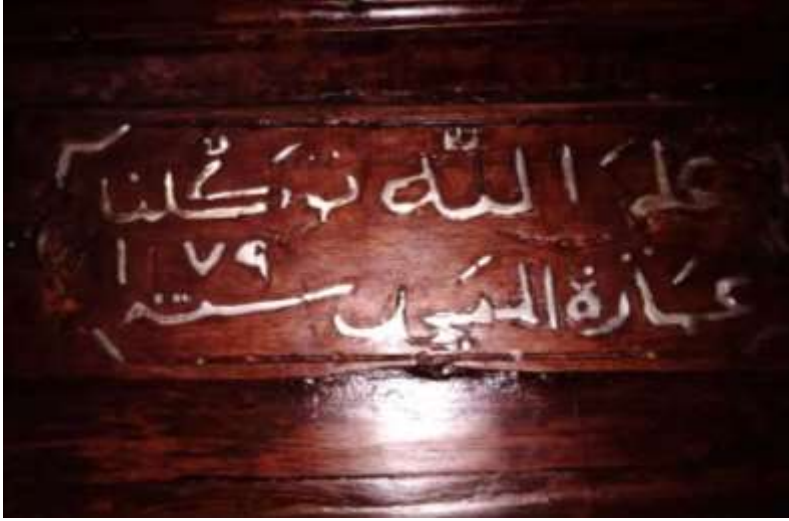 على الله توكلنا
عمارة المسجد سنة
١ ٧٩